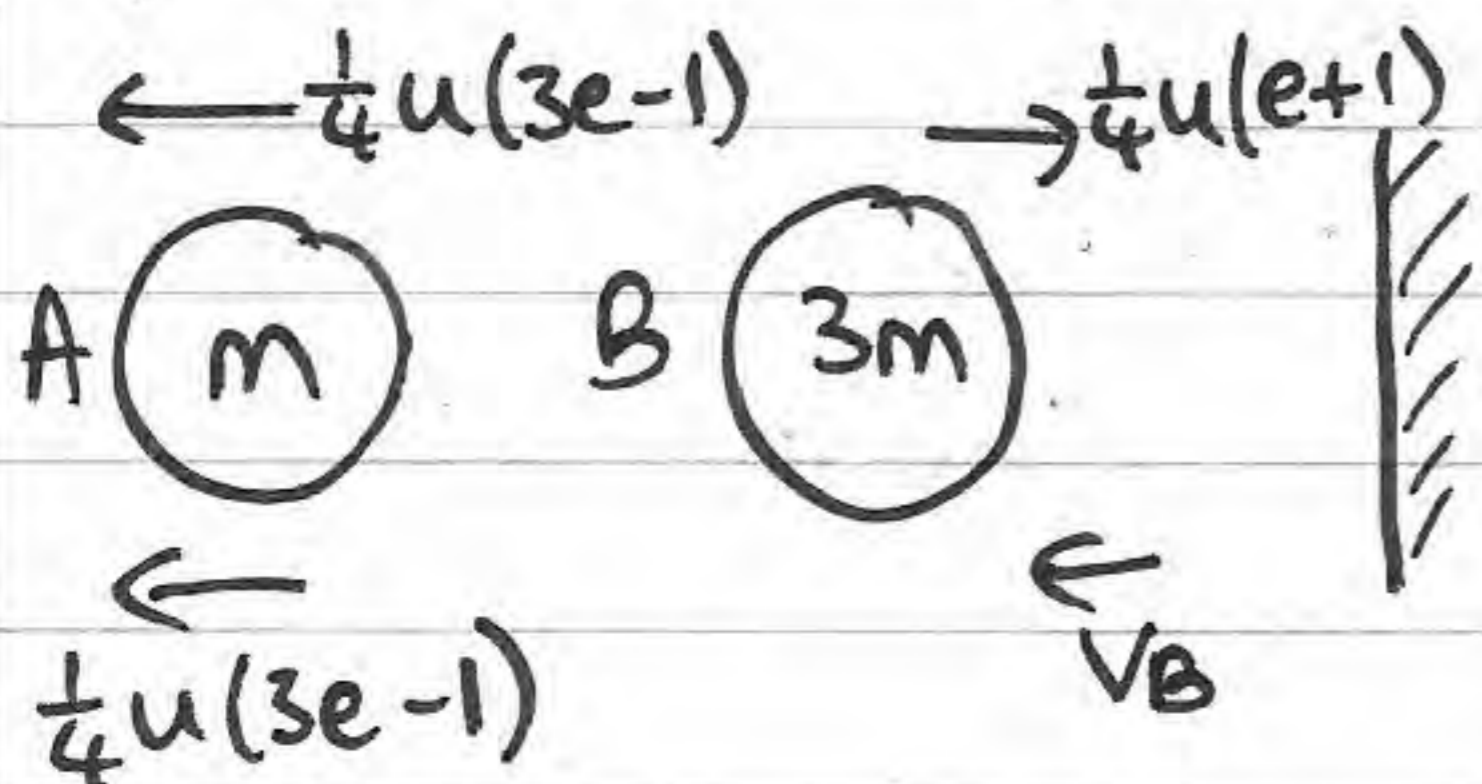 ← ¼u(3e-1) → ¼u(e+1)
A m B 3m
← ←
¼u(3e-1) VB